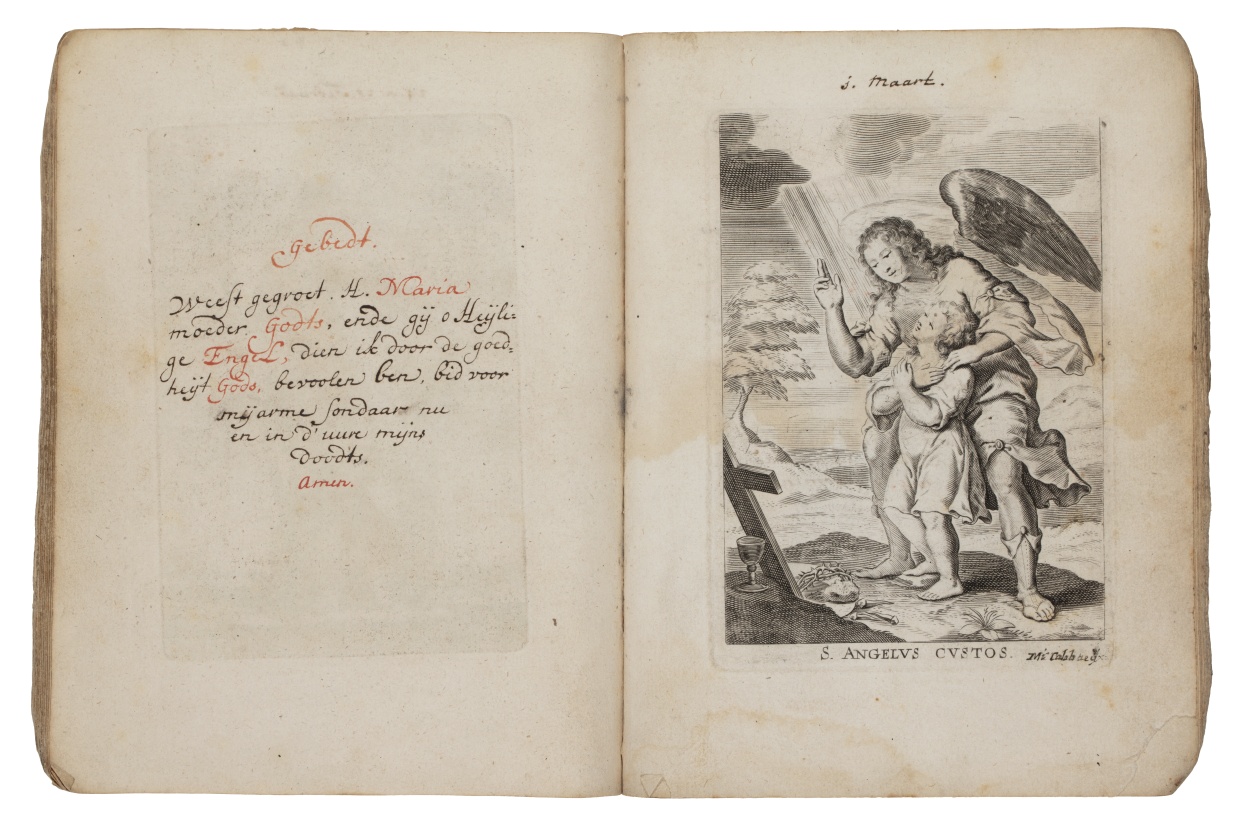 Gebedt.
Weest gegroet. H. Maria
moeder Godts, ende gij o Heijli-
ge Engel, dien ik door de goed-
heijt Gods, bevoolen ben, bid voor
mij arme sondaar nu
en in d'uure mijns
doodts.
Amen.
j. Maart.
S. ANGELVS CVSTOS.